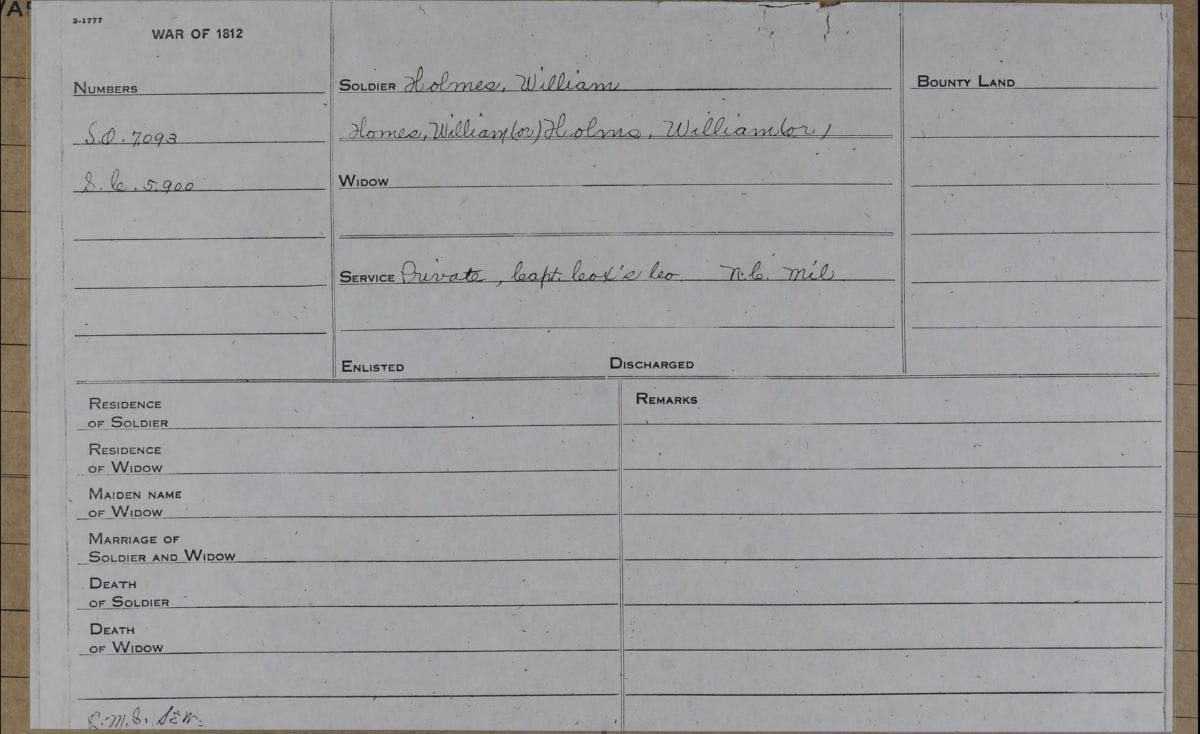 3-1777
WAR OF 1812
NUMBERS
S.O. 7093
S.C. 5.900
SOLDIER Holmes, William
Homes, William (or) Holms, William (or)
WIDOW
SERVICE Private, Capt. Cox's Co. N.C. Mil
ENLISTED DISCHARGED
BOUNTY LAND
RESIDENCE
OF SOLDIER
RESIDENCE
OF WIDOW
MAIDEN NAME
OF WIDOW
MARRIAGE OF
SOLDIER AND WIDOW
DEATH
OF SOLDIER
DEATH
OF WIDOW
REMARKS